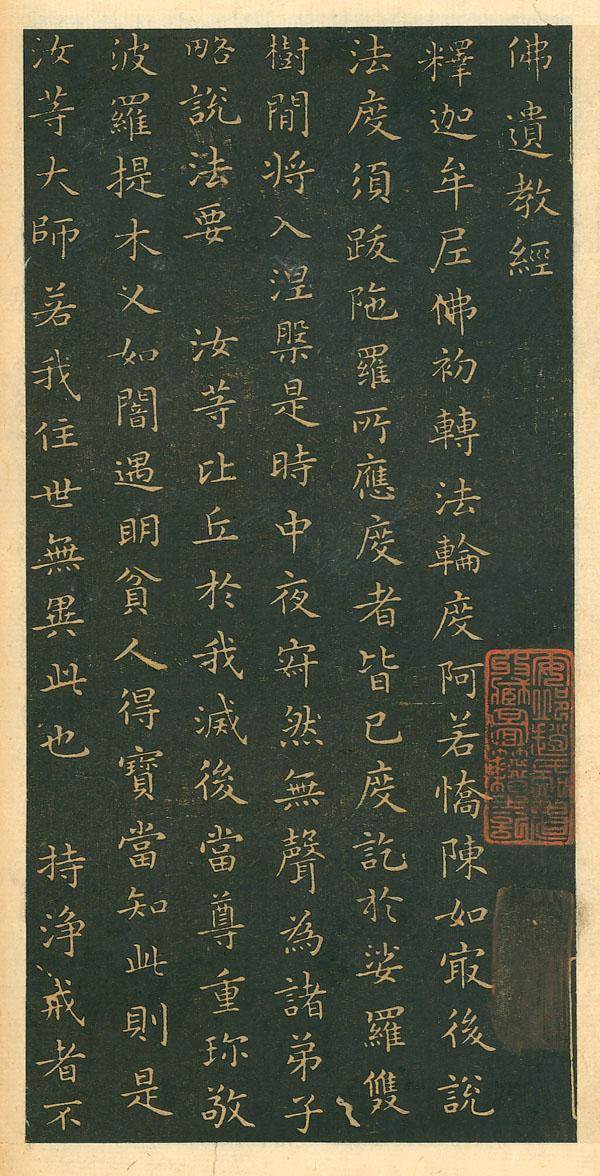 佛遺教經
釋迦牟尼佛初轉法輪度阿若憍陳如冣後說
法度須跋陁羅所應度者皆已度訖於娑羅雙
樹間將入涅槃是時中夜寂然無聲為諸弟子
略說法要 汝等比丘於我滅後當尊重珎敬
波羅提木叉如闇遇明貧人得寶當知此則是
汝等大師若我住世無異此也 持淨戒者不